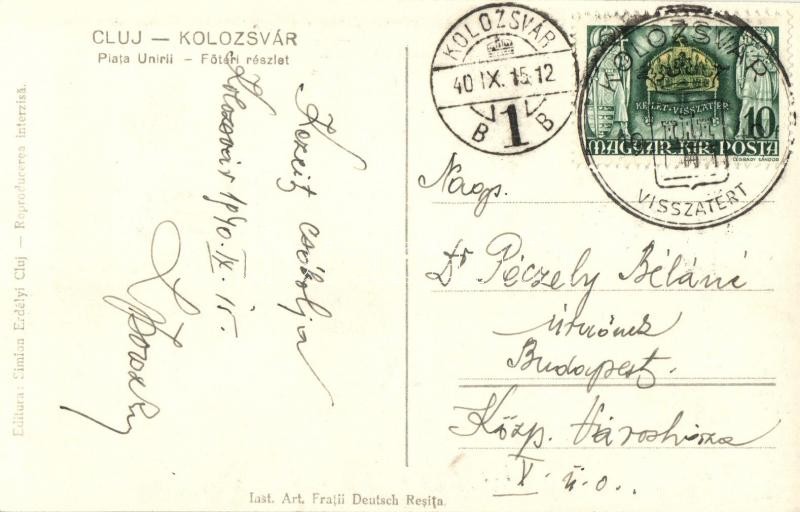 CLUJ — KOLOZSVÁR
Piața Unirii – Főtéri részlet
Kezeit csókolja
Kolozsvár 1940. IX. 15.
Editura: Simion Erdélyi Cluj — Reproducerea interzisă.
Inst. Art. Frații Deutsch Reșița.
KOLOZSVÁR
40 IX. 15. 12
B 1 B
KOLOZSVÁR
VISSZATÉRT
KELET-VISSZATÉR
10
MAGYAR KIR. POSTA
LÉGRÁDY SÁNDOR
Nagys.
Dr Péczely Béláné
úrnőnek
Budapest.
Közp. Városháza
V. u.o.